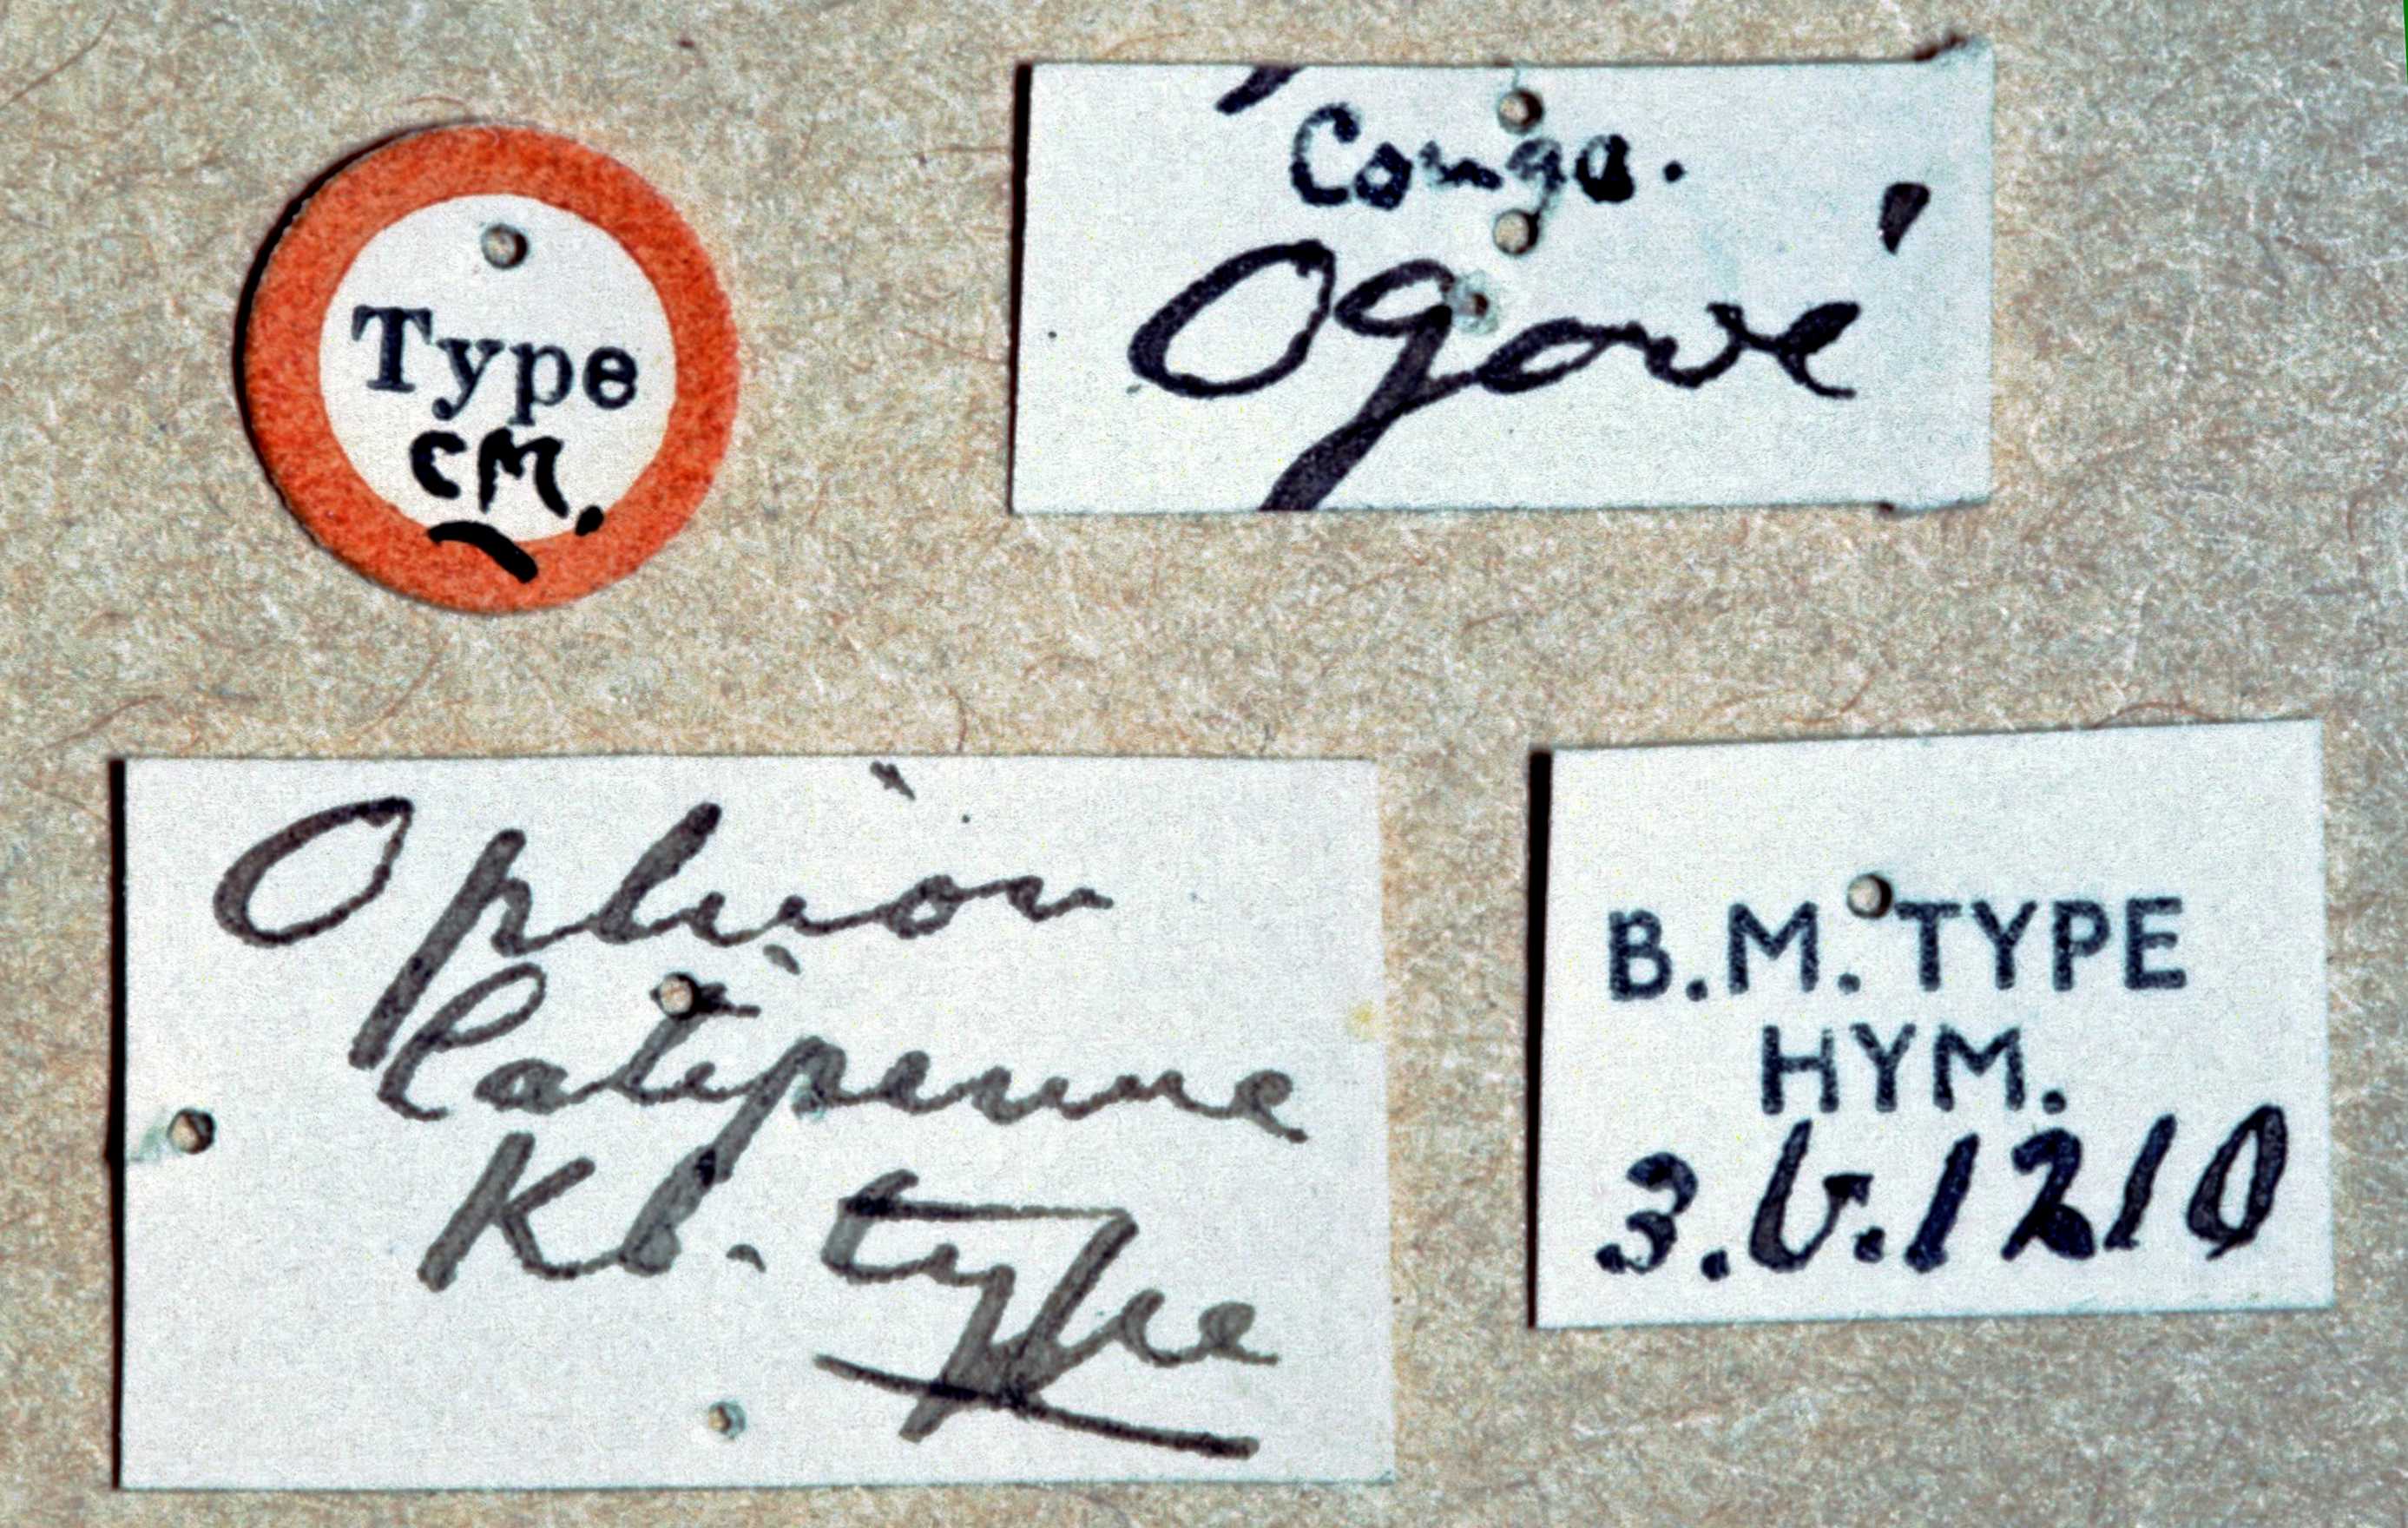 Type
CM.
Congo.
Ogové
Ophion
latipenne
Kb. type
B.M. TYPE
HYM.
3.b.1210